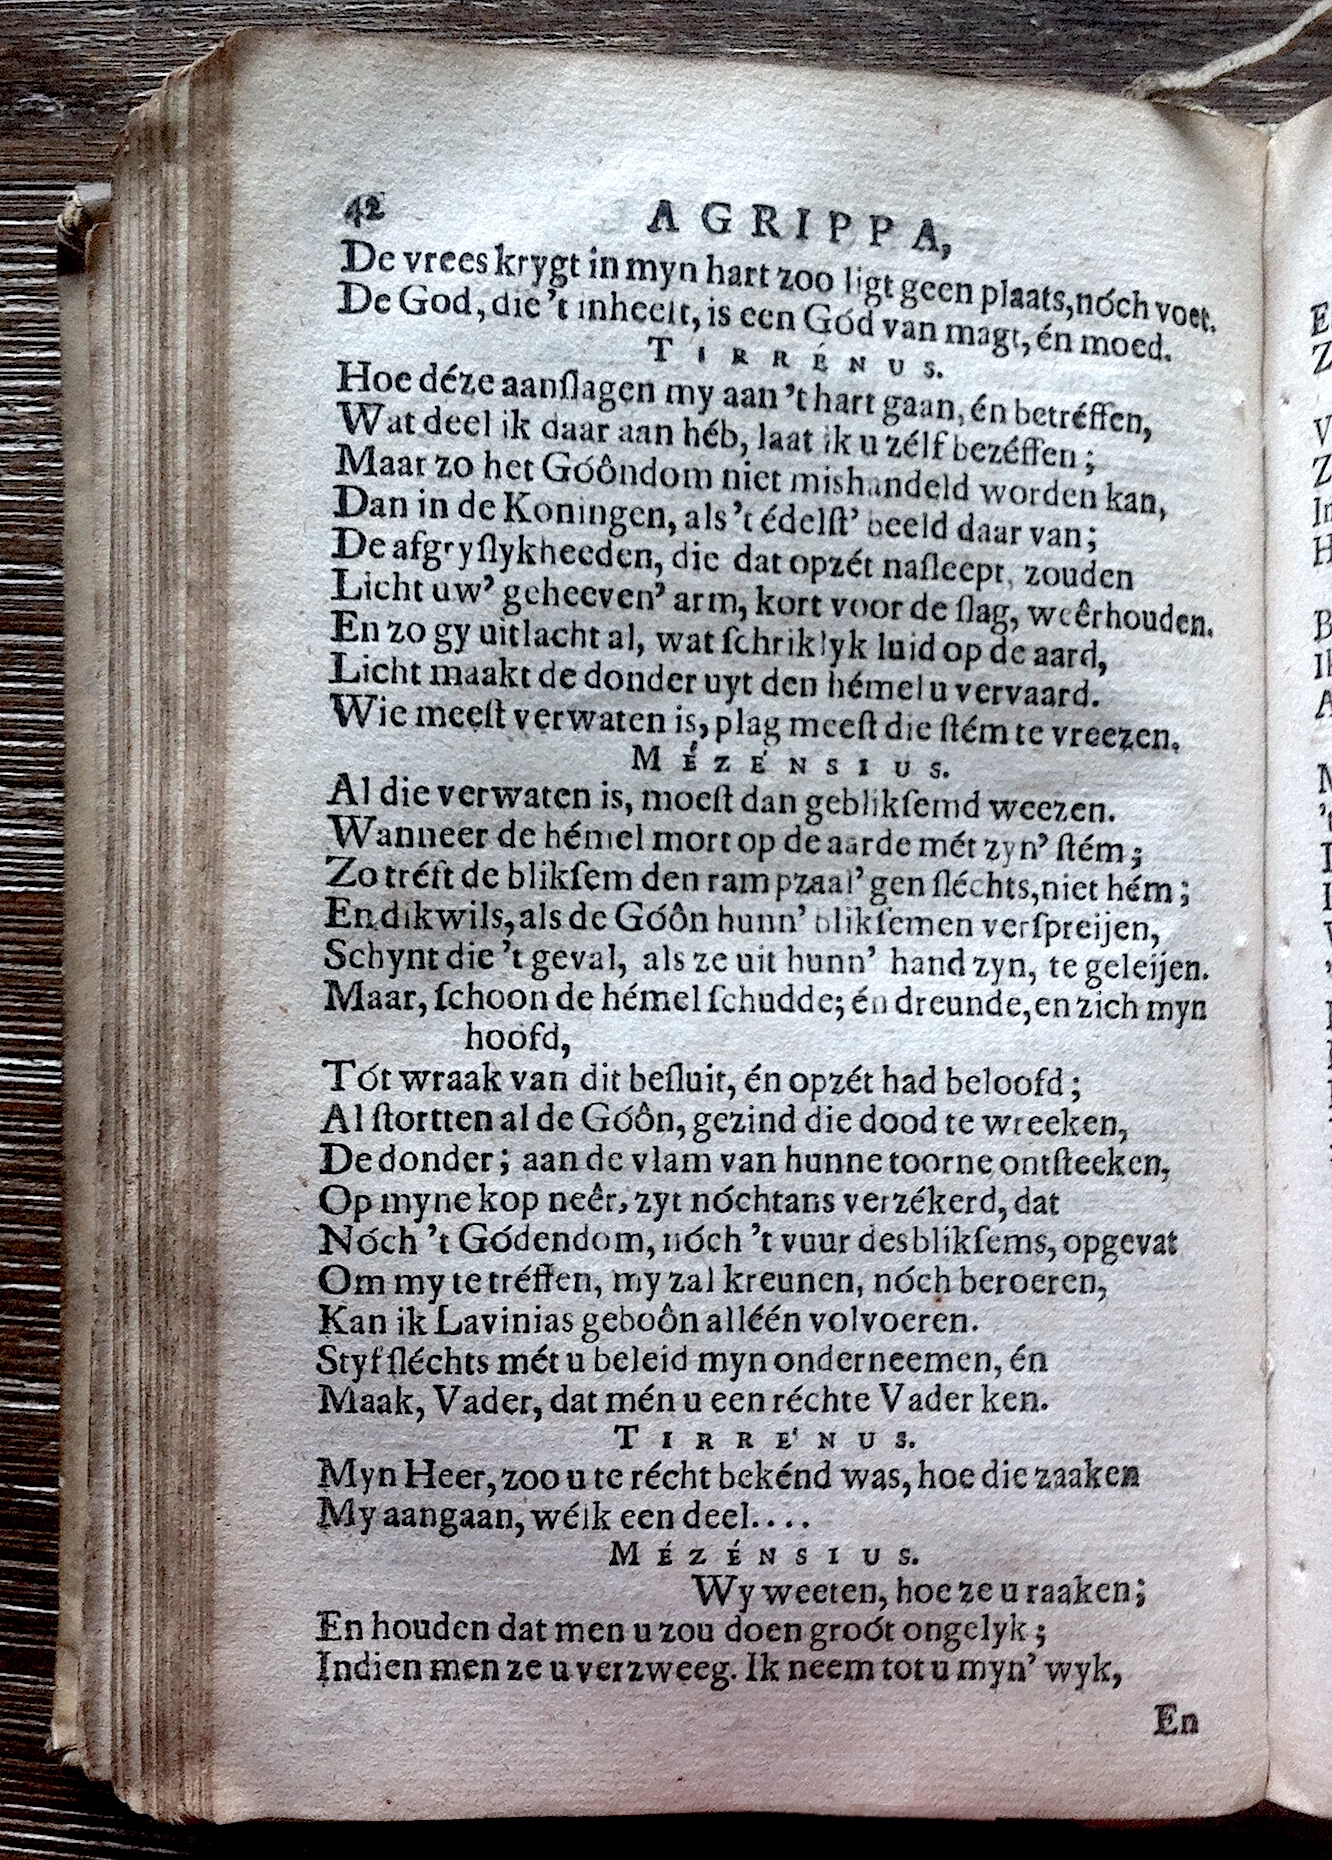 42
AGRIPPA,
De vrees krygt in myn hart zoo ligt geen plaats, nóch voet.
De God, die 't inheeft, is een Gód van magt, én moed.
TIRRÉNUS.
Hoe déze aanſlagen my aan 't hart gaan, én betréffen,
Wat deel ik daar aan héb, laat ik u zélf bezéffen;
Maar zo het Góôndom niet mishandeld worden kan,
Dan in de Koningen, als 't édelſt' beeld daar van;
De afgryſlykheeden, die dat opzét naſleept, zouden
Licht uw' geheeven' arm, kort voor de ſlag, weêrhouden.
En zo gy uitlacht al, wat ſchriklyk luid op de aard,
Licht maakt de donder uyt den hémel u vervaard.
Wie meeſt verwaten is, plag meeſt die ſtém te vreezen.
MÉZÉNSIUS.
Al die verwaten is, moeſt dan geblikſemd weezen.
Wanneer de hémel mort op de aarde mét zyn' ſtém;
Zo tréft de blikſem den rampzaal'gen ſléchts, niet hém;
En dikwils, als de Góôn hunn' blikſemen verſpreijen,
Schynt die 't geval, als ze uit hunn' hand zyn, te geleijen.
Maar, ſchoon de hémel ſchudde; én dreunde, en zich myn
hoofd,
Tót wraak van dit beſluit, én opzét had beloofd;
Al ſtortten al de Góôn, gezind die dood te wreeken,
De donder; aan de vlam van hunne toorne ontſteeken,
Op myne kop neêr, zyt nóchtans verzékerd, dat
Nóch 't Gódendom, nóch 't vuur des blikſems, opgevat
Om my te tréffen, my zal kreunen, nóch beroeren,
Kan ik Lavinias geboôn alléén volvoeren.
Styf ſléchts mét u beleid myn onderneemen, én
Maak, Vader, dat mén u een réchte Vader ken.
TIRRE'NUS.
Myn Heer, zoo u te récht bekénd was, hoe die zaaken
My aangaan, wélk een deel....
MÉZÉNSIUS.
Wy weeten, hoe ze u raaken;
En houden dat men u zou doen groót ongelyk;
Indien men ze u verzweeg. Ik neem tot u myn' wyk,
En